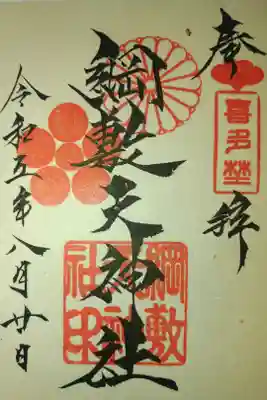 奉拝
喜多埜
綱敷天神社
綱敷
天神
社印
令和五年八月廿日